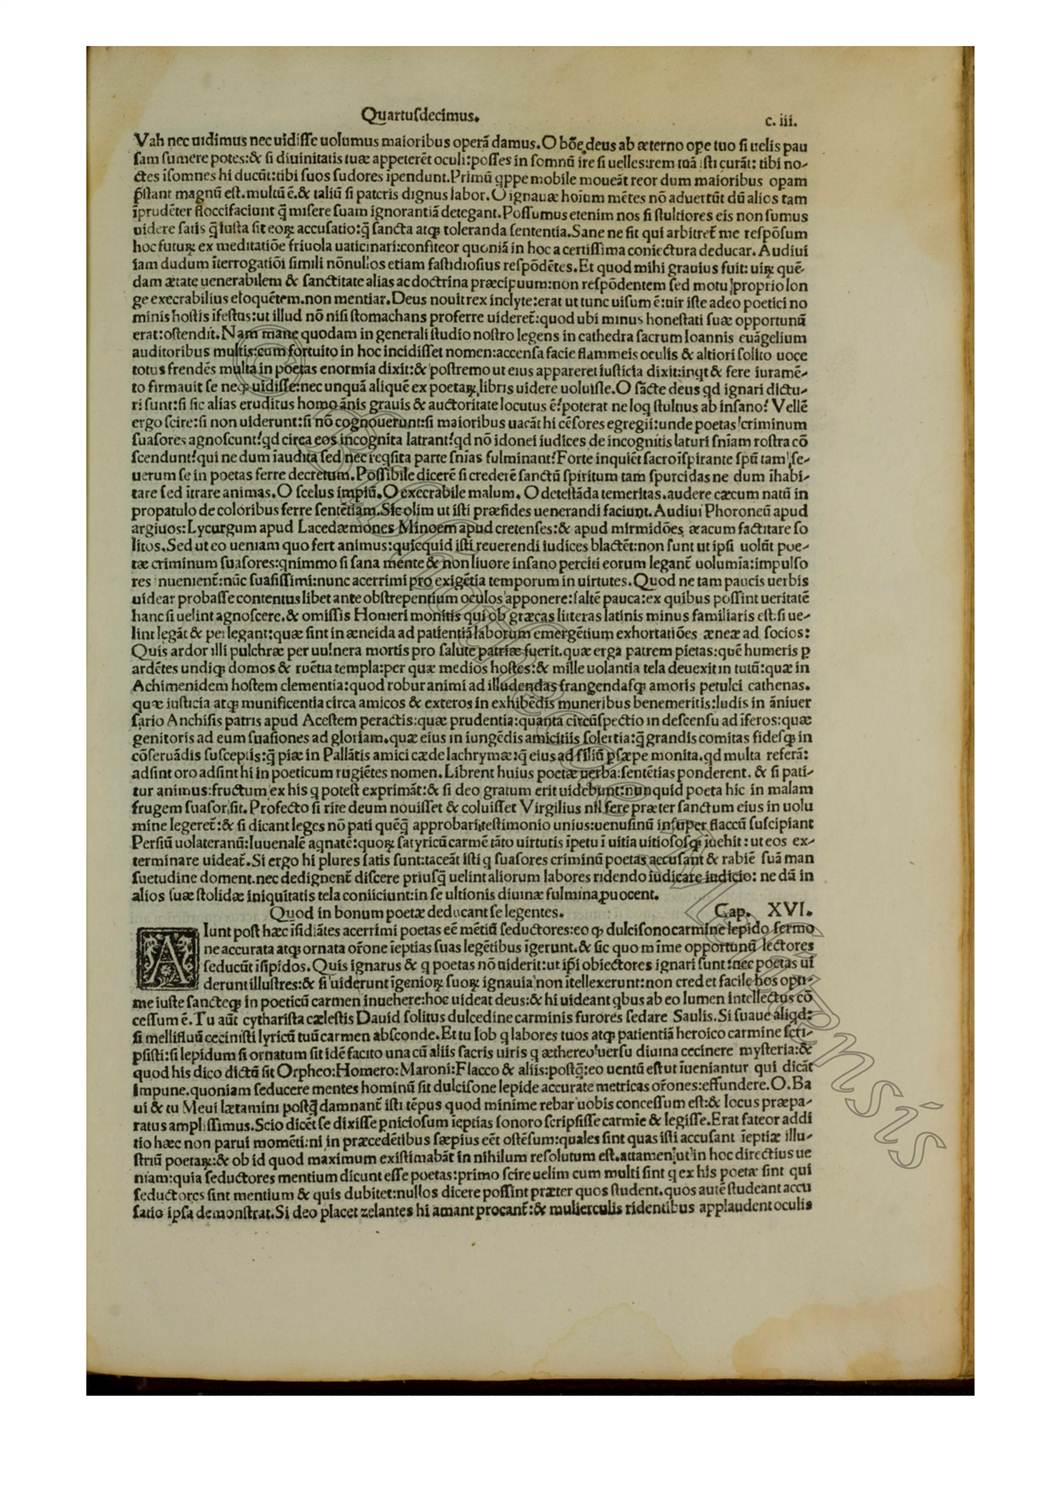 Quartusdecimus. c. iii.
Vah nec uidimus nec uidisse uolumus maioribus operā damus. O bōe deus ab æterno ope tuo si uelis pau
sam sumere potes: & si diuinitatis tuæ appeterēt oculi: posses in somnū ire si uelles: rem tuā isti curāt: tibi no-
ctes isomnes hi ducūt: tibi suos sudores ipendunt. Primū qppe mobile moueāt reor dum maioribus opam
p̄stant magnū est. multū ē. & taliū si pateris dignus labor. O ignauæ hoium mētes nō aduertūt dū alios tam
īprudēter floccifaciunt q̄ misere suam ignorantiā detegant. Possumus etenim nos si stultiores eis non sumus
uidere satis q̄ iusta sit eoꝝ accusatio: q̄ sancta atqꝫ toleranda sententia. Sane ne sit qui arbitret̄ me respōsum
hoc futuꝝ ex meditatiōe friuola uaticinari: confiteor quoniā in hoc a certissima coniectura deducar. Audiui
iam dudum īterrogatiōi simili nōnullos etiam fastidiosius respōdētes. Et quod mihi grauius fuit: uiꝝ quē-
dam ætate uenerabilem & sanctitate alias ac doctrina præcipuum: non respōdentem sed motu proprio lon
ge execrabilius eloquētem. non mentiar. Deus nouit rex inclyte: erat ut tunc uisum ē: uir iste adeo poetici no
minis hostis īfestus: ut illud nō nisi stomachans proferre uideret̄: quod ubi minus honestati suæ opportunū
erat: ostendit. Nam mane quodam in generali studio nostro legens in cathedra sacrum Ioannis euāgelium
auditoribus multis: cum fortuito in hoc incidisset nomen: accensa facie flammeis oculis & altiori solito uoce
totus frendēs multa in poetas enormia dixit: & postremo ut eius appareret iusticia dixit: inqt & fere iuramē-
to firmauit se neqꝫ uidisse: nec unquā aliquē ex poetaꝝ libris uidere uoluisse. O sācte deus qd ignari dictu-
ri sunt: si sic alias eruditus homo ānis grauis & auctoritate locutus ē? poterat ne loq stultius ab insano? Vellē
ergo scire: si non uiderunt: si nō cognouerunt: si maioribus uacāt hi cēsores egregii: unde poetas criminum
suasores agnoscunt? qd circa eos incognita latrant? qd nō idonei iudices de incognitis laturi sn̄iam rostra cō
scendunt? qui ne dum īaudita sed nec reqsita parte sn̄ias fulminant? Forte inquiēt sacro īspirante spū tam se-
uerum se in poetas ferre decretum. Possibile dicerē si crederē sanctū spiritum tam spurcidas ne dum īhabi-
tare sed ītrare animas. O scelus impiū. O execrabile malum. O detestāda temeritas. audere cæcum natū in
propatulo de coloribus ferre sentētiam. Sic olim ut isti præsides uenerandi faciunt. Audiui Phoroneū apud
argiuos: Lycurgum apud Lacedæmones Minoem apud cretenses: & apud mirmidōes æacum factitare so
litos. Sed ut eo ueniam quo fert animus: quicquid isti reuerendi iudices blactēt: non sunt ut ipsi uolūt poe-
tæ criminum suasores: qnimmo si sana mente & non liuore insano perciti eorum legant̄ uolumia: impulso
res inuenient̄: nūc suasissimi: nunc acerrimi pro exigētia temporum in uirtutes. Quod ne tam paucis uerbis
uidear probasse contentus libet ante obstrepentium oculos apponere: saltē pauca: ex quibus possint ueritatē
hanc si uelint agnoscere. & omissis Homeri monitis qui ob græcas litteras latinis minus familiaris est: si ue-
lint legāt & perlegant: quæ sint in æneida ad patientiā laborum emergētium exhortatiōes æneæ ad socios:
Quis ardor illi pulchræ per uulnera mortis pro salute patriæ fuerit. quæ erga patrem pietas: quē humeris p
ardētes undiqꝫ domos & ruētia templa: per quæ medios hostes: & mille uolantia tela deuexit in tutū: quæ in
Achimenidem hostem clementia: quod robur animi ad illudendas frangendasqꝫ amoris petulci cathenas.
quæ iusticia atqꝫ munificentia circa amicos & exteros in exhibēdis muneribus benemeritis: ludis in āniuer
sario Anchisis patris apud Acestem peractis: quæ prudentia: quanta circūspectio in descensu ad īferos: quæ
genitoris ad eum suasiones ad gloriam. quæ eius in iungēdis amicitiis solertia: q̄ grandis comitas fidesqꝫ in
cōseruādis susceptis: q̄ piæ in Pallātis amici cæde lachrymæ: q̄ eius ad filiū p̄sæpe monita. qd multa referā:
adsint oro adsint hi in poeticum rugiētes nomen. Librent huius poetæ uerba: sentētias ponderent. & si pati-
tur animus: fructum ex his q potest exprimāt: & si deo gratum erit uidebunt: nunquid poeta hic in malam
frugem suasor sit. Profecto si rite deum nouisset & coluisset Virgilius nil fere præter sanctum eius in uolu
mine legeret̄: & si dicant leges nō pati quēq̄ approbari testimonio unius: uenusinū insuper flaccū suscipiant
Persiū uolateranū: Iuuenalē aqnatē: quoꝝ satyricū carmē tāto uirtutis īpetu ī uitia uitiososqꝫ īuehit: ut eos ex-
terminare uideat̄. Si ergo hi plures satis sunt: taceāt isti q suasores criminū poetas accusant & rabiē suā man
suetudine doment. nec dedignent̄ discere priusq̄ uelint aliorum labores ridendo iudicare iudicio: ne dā in
alios suæ stolidæ iniquitatis tela coniiciunt: in se ultionis diuinæ fulmina puocent.
Quod in bonum poetæ deducant se legentes. Cap. XVI.
AIunt post hæc īsidiātes acerrimi poetas eē mētiū seductores: eo qꝫ dulcisono carmine lepido sermo
ne accurata atqꝫ ornata or̄one īeptias suas legētibus īgerunt. & sic quo mīme opportunū lectores
seducūt īsipidos. Quis ignarus & q poetas nō uiderit: ut ip̄i obiectores ignari sunt: nec poetas ui
derunt illustres: & si uiderunt īgenioꝝ suoꝝ ignauia non itellexerunt: non cred et facile hos opti-
me iuste sancteqꝫ in poeticū carmen inuehere: hoc uideat deus: & hi uideant qbus ab eo lumen intellectus cō
cessum ē. Tu aūt cytharista cælestis Dauid solitus dulcedine carminis furores sedare Saulis. Si suaue aliqd:
si mellifluū cecinisti lyricū tuū carmen absconde. Et tu Iob q labores tuos atqꝫ patientiā heroico carmine scri-
psisti: si lepidum si ornatum sit idē facito una cū aliis sacris uiris q æthereo uersu diuina cecinere mysteria: &
quod his dico dictū sit Orpheo: Homero: Maroni: Flacco & aliis: postq̄: eo uentū est ut īueniantur qui dicāt
impune. quoniam seducere mentes hominū sit dulcisone lepide accurate metricas or̄ones: effundere. O. Ba
ui & tu Meui lætamini postq̄ damnant̄ isti tēpus quod minime rebar uobis concessum est: & locus præpa-
ratus amplissimus. Scio dicēt se dixisse pniciosum īeptias sonoro scripsisse carmīe & legisse. Erat fateor addi
tio hæc non parui momēti: ni in præcedētibus sæpius eēt ostēsum: quales sint quas isti accusant īeptiæ illu-
striū poetaꝝ: & ob id quod maximum existimabāt in nihilum resolutum est. attamen ut in hoc directius ue
niam: quia seductores mentium dicunt esse poetas: primo scire uelim cum multi sint q ex his poetæ sint qui
seductores sint mentium & quis dubitet: nullos dicere possint præter quos student. quos autē studeant accu
satio ipsa demonstrat. Si deo placet zelantes hi amant procant̄: & mulierculis ridentibus applaudent oculis